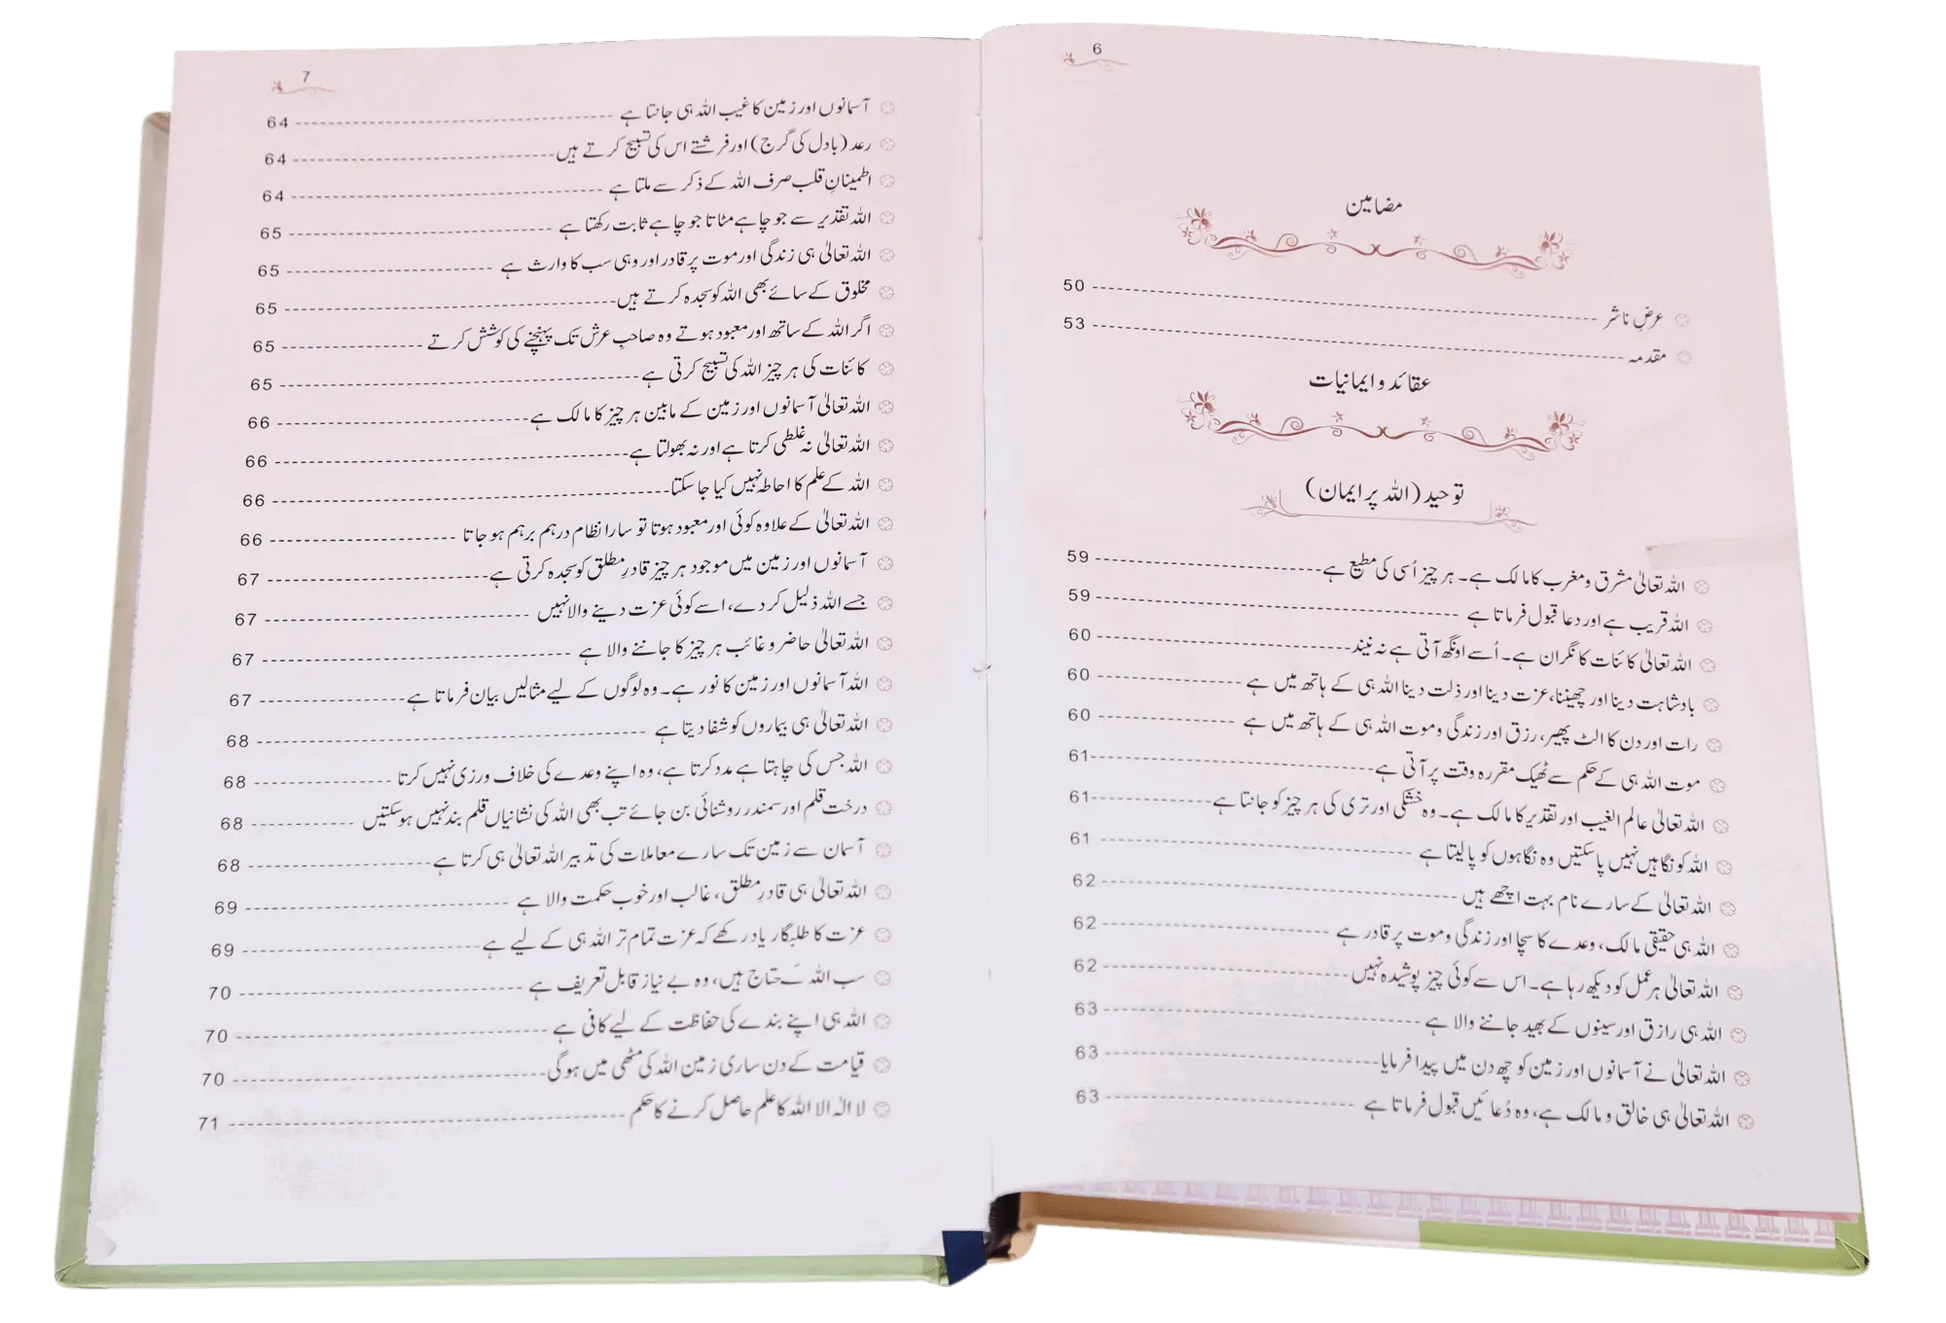 6
مضامین
عرضِ ناشر 50
مقدمہ 53
عقائد و ایمانیات
توحید (اللہ پر ایمان)
اللہ تعالیٰ مشرق و مغرب کا مالک ہے۔ ہر چیز اُسی کی مطیع ہے 59
اللہ قریب ہے اور دعا قبول فرماتا ہے 59
اللہ تعالیٰ کائنات کا نگران ہے۔ اُسے اونگھ آتی ہے نہ نیند 60
بادشاہت دینا اور چھیننا، عزت دینا اور ذلت دینا اللہ ہی کے ہاتھ میں ہے 60
رات اور دن کا الٹ پھیر، رزق اور زندگی و موت اللہ ہی کے ہاتھ میں ہے 60
موت اللہ ہی کے حکم سے ٹھیک مقررہ وقت پر آتی ہے 61
اللہ تعالیٰ عالم الغیب اور تقدیر کا مالک ہے۔ وہ خشکی اور تری کی ہر چیز کو جانتا ہے 61
اللہ کو نگاہیں نہیں پا سکتیں وہ نگاہوں کو پا لیتا ہے 61
اللہ تعالیٰ کے سارے نام بہت اچھے ہیں 62
اللہ ہی حقیقی مالک، وعدے کا سچا اور زندگی و موت پر قادر ہے 62
اللہ تعالیٰ ہر عمل کو دیکھ رہا ہے۔ اس سے کوئی چیز پوشیدہ نہیں 62
اللہ ہی رازق اور سینوں کے بھید جاننے والا ہے 63
اللہ تعالیٰ نے آسمانوں اور زمین کو چھ دن میں پیدا فرمایا 63
اللہ تعالیٰ ہی خالق و مالک ہے، وہ دُعائیں قبول فرماتا ہے 63
7
آسمانوں اور زمین کا غیب اللہ ہی جانتا ہے 64
رعد (بادل کی گرج) اور فرشتے اس کی تسبیح کرتے ہیں 64
اطمینانِ قلب صرف اللہ کے ذکر سے ملتا ہے 64
اللہ تقدیر سے جو چاہے مٹاتا جو چاہے ثابت رکھتا ہے 65
اللہ تعالیٰ ہی زندگی اور موت پر قادر اور وہی سب کا وارث ہے 65
مخلوق کے سائے بھی اللہ کو سجدہ کرتے ہیں 65
اگر اللہ کے ساتھ اور معبود ہوتے وہ صاحبِ عرش تک پہنچنے کی کوشش کرتے 65
کائنات کی ہر چیز اللہ کی تسبیح کرتی ہے 65
اللہ تعالیٰ آسمانوں اور زمین کے مابین ہر چیز کا مالک ہے 66
اللہ تعالیٰ نہ غلطی کرتا ہے اور نہ بھولتا ہے 66
اللہ کے علم کا احاطہ نہیں کیا جا سکتا 66
اللہ تعالیٰ کے علاوہ کوئی اور معبود ہوتا تو سارا نظام درہم برہم ہو جاتا 66
آسمانوں اور زمین میں موجود ہر چیز قادرِ مطلق کو سجدہ کرتی ہے 67
جسے اللہ ذلیل کر دے، اسے کوئی عزت دینے والا نہیں 67
اللہ تعالیٰ حاضر و غائب ہر چیز کا جاننے والا ہے 67
اللہ آسمانوں اور زمین کا نور ہے۔ وہ لوگوں کے لیے مثالیں بیان فرماتا ہے 67
اللہ تعالیٰ ہی بیماروں کو شفا دیتا ہے 68
اللہ جس کی چاہتا ہے مدد کرتا ہے، وہ اپنے وعدے کی خلاف ورزی نہیں کرتا 68
درخت قلم اور سمندر روشنائی بن جائے تب بھی اللہ کی نشانیاں قلم بند نہیں ہو سکتیں 68
آسمان سے زمین تک سارے معاملات کی تدبیر اللہ تعالیٰ ہی کرتا ہے 68
اللہ تعالیٰ ہی قادرِ مطلق، غالب اور خوب حکمت والا ہے 69
عزت کا طلبگار یاد رکھے کہ عزت تمام تر اللہ ہی کے لیے ہے 69
سب اللہ کے محتاج ہیں، وہ بے نیاز قابل تعریف ہے 70
اللہ ہی اپنے بندے کی حفاظت کے لیے کافی ہے 70
قیامت کے دن ساری زمین اللہ کی مٹھی میں ہو گی 70
لا الٰہ الا اللہ کا علم حاصل کرنے کا حکم 71